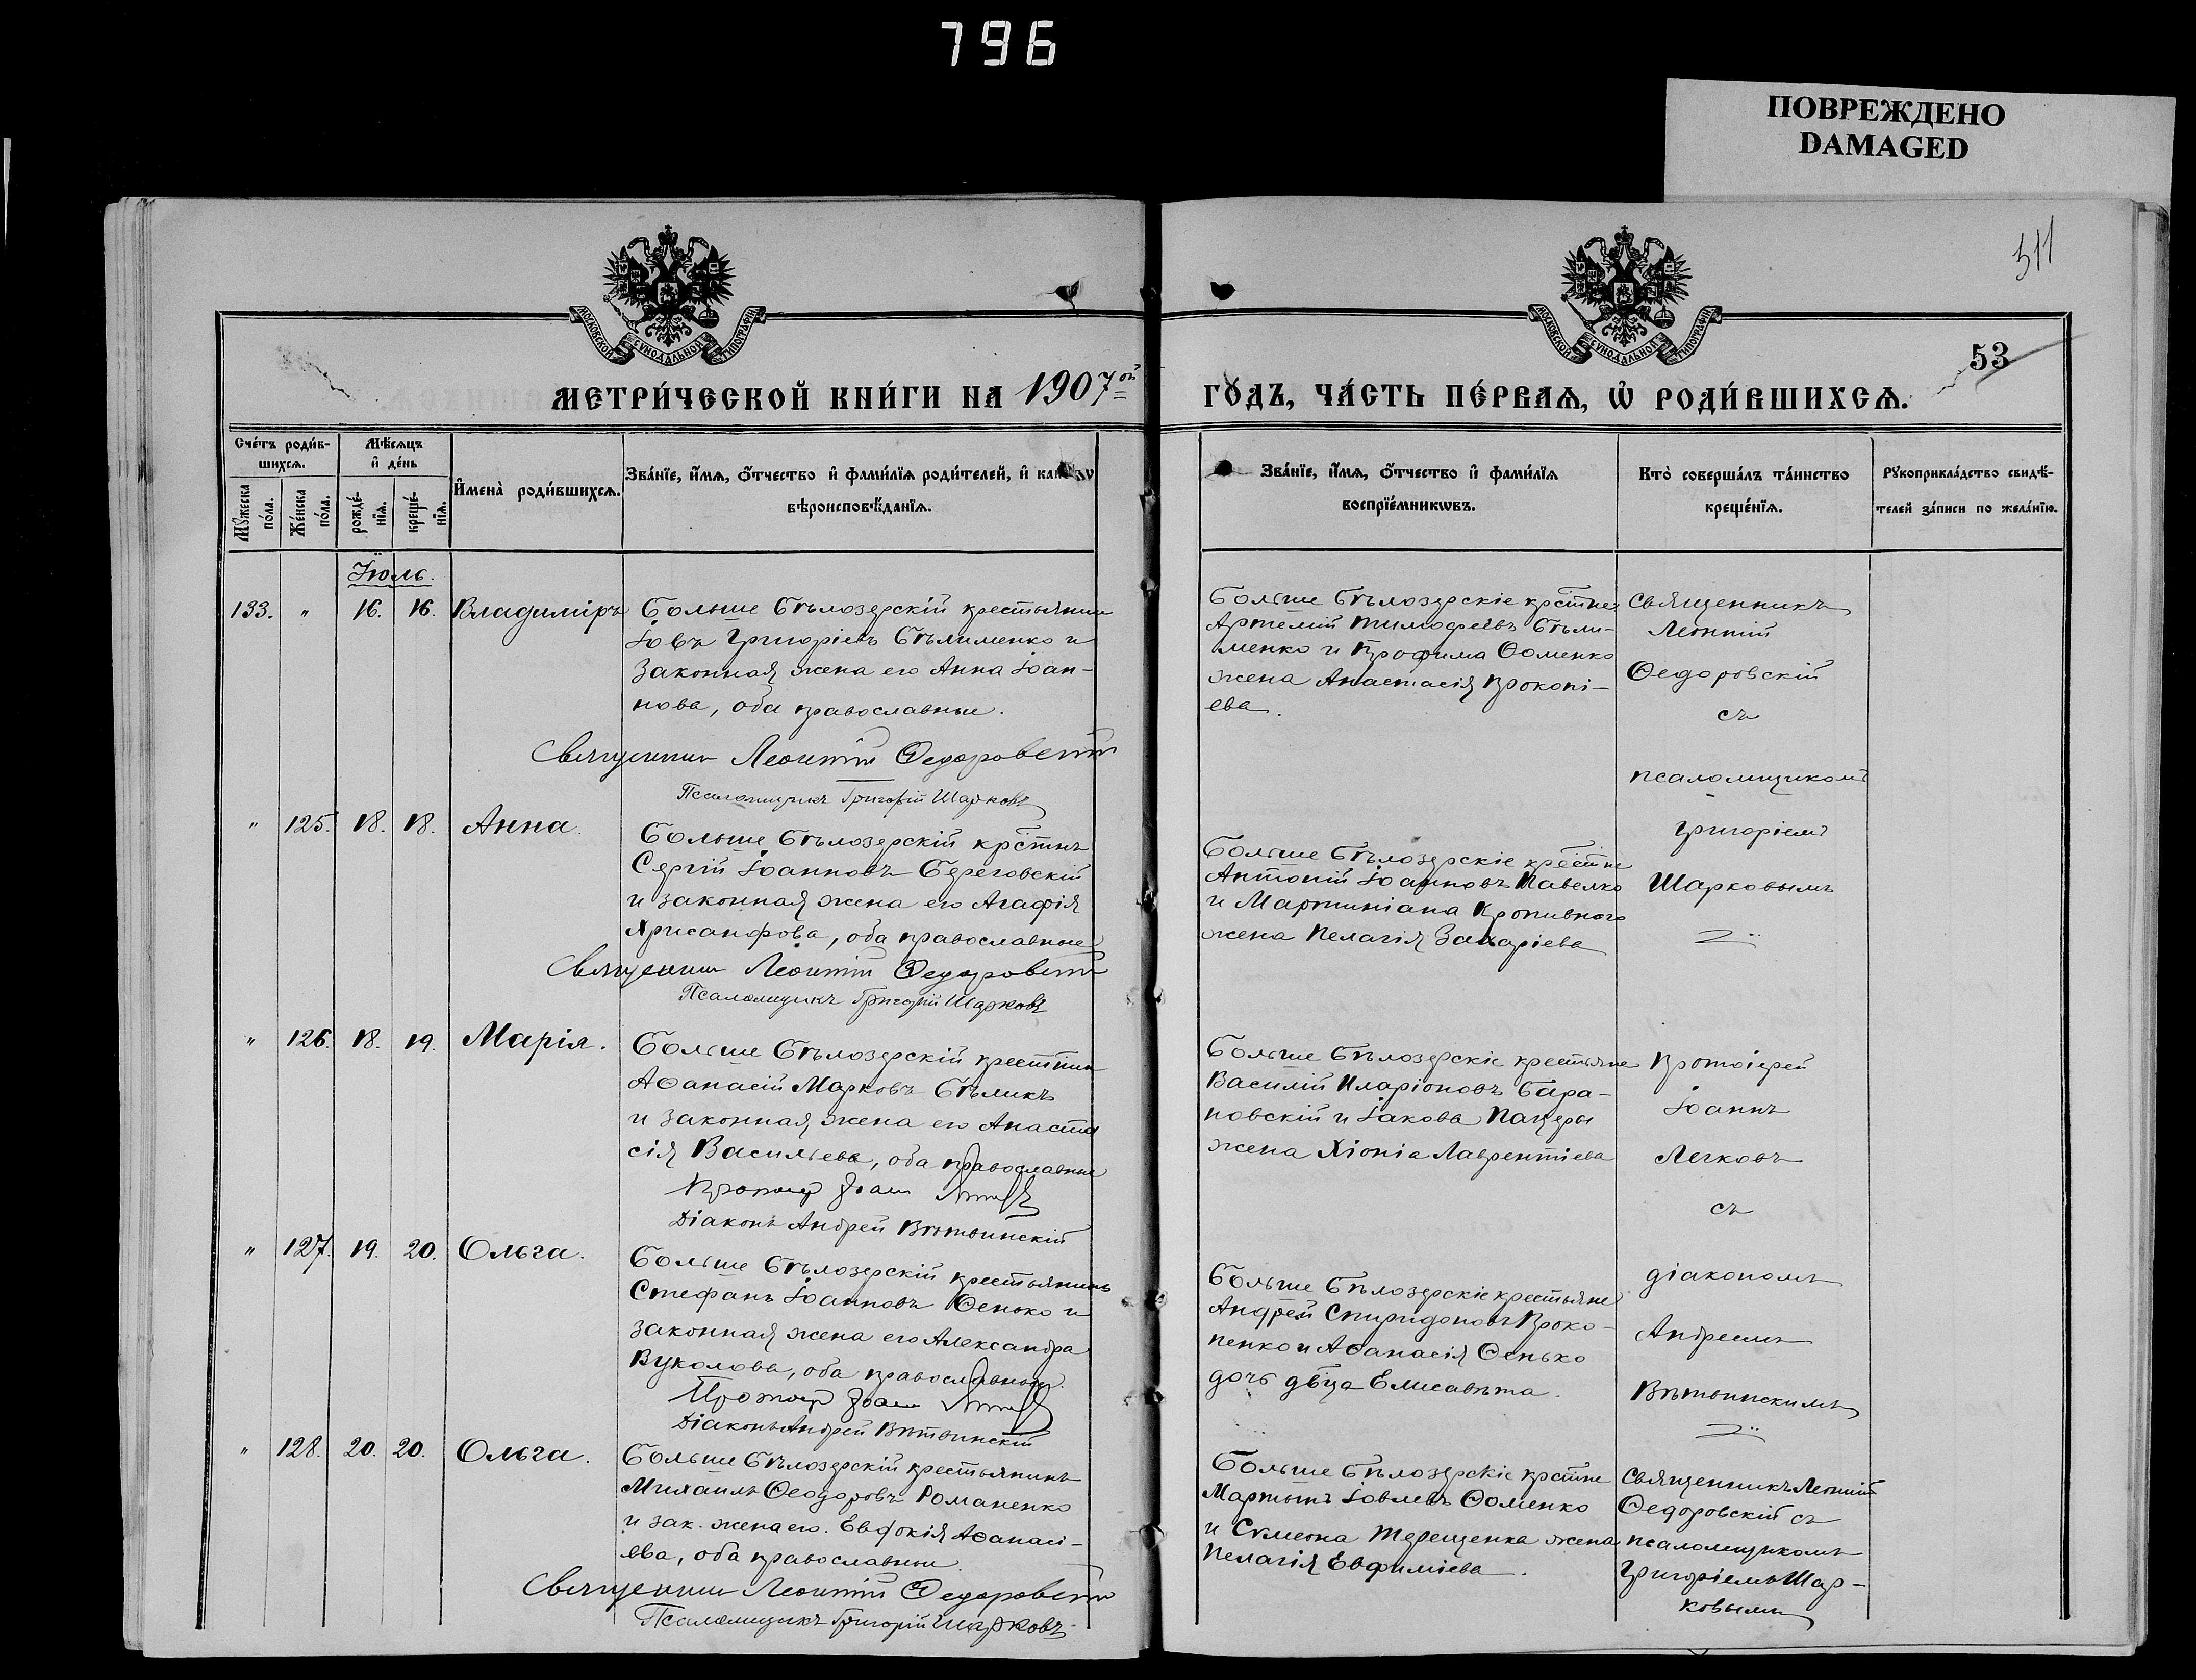 796
ПОВРЕЖДЕНО
DAMAGED
311
53
МОСКОВСКОЙ СУНОДАЛЬНОЙ ТИПОГРАФІИ
МОСКОВСКОЙ СУНОДАЛЬНОЙ ТИПОГРАФІИ
МЕТРИ́ЧЕСКОЙ КНИ́ГИ НА 1907 ой
ГО́ДЪ, ЧА́СТЬ ПЕ́РВАѦ, Ѡ҆ РОДИ́ВШИХСѦ.
Сче́тъ роди́в-
шихсѧ.
Мѣ́сѧцъ
и҆ де́нь
Мꙋ́жеска
по́ла.
Же́нска
по́ла.
рожде́-
нїѧ.
креще́-
нїѧ.
И҆мена̀ роди́вшихсѧ.
Зва́нїе, и҆́мѧ, ѻ҆́тчество и҆ фами́лїѧ роди́телей, и҆
вѣроисповѣ́данїѧ.
Зва́нїе, и҆́мѧ, ѻ҆́тчество и҆ фами́лїѧ
воспрїе́мникѡвъ.
Кто̀ соверша́лъ та́инство
креще́нїѧ.
Рꙋкоприкла́дство свидѣ́-
телей за́писи по жела́нїю.
Іюль.
133. " 16. 16. Владиміръ
Больше Бѣлозерскій крестьянинъ
Іовъ Григоріевъ Бѣлименко и
законная жена его Анна Іоан-
нова, оба православные.
Священникъ Леонтій Ѳедоровскій
Псаломщикъ Григорій Шарковъ
Больше Бѣлозерскіе крстне
Артемій Тимофеевъ Бѣли-
менко и Трофима Ѳоменко
жена Анастасія Прокопі-
ева.
Священникъ
Леонтій
Ѳедоровскій
съ
псаломщикомъ
Григоріемъ
Шарковымъ
" 125. 18. 18. Анна.
Больше Бѣлозерскій крстнъ
Сергій Іоанновъ Береговскій
и законная жена его Агафія
Хрисанфова, оба православные
Священникъ Леонтій Ѳедоровскій
Псаломщикъ Григорій Шарковъ
Больше Бѣлозерскіе крестне
Антоній Іоанновъ Павелко
и Мартиніана Кропивного
жена Пелагія Захаріева
" 126. 18. 19. Марія.
Больше Бѣлозерскій
Аѳанасій Марковъ Бѣликъ
и законная жена его Анаста
сія Васильева, оба православные
Протоіер Іоан
Діаконъ Андрей Вѣтвинскій
Больше Бѣлозерскіе крестьяне
Василій Иларіоновъ Бара-
новскій и Іакова Пацеры
жена Хіонія Лаврентіева
Протоіерей
Іоаннъ
Легковъ
съ
діакономъ
Андреемъ
Вѣтвинскимъ
" 127. 19. 20. Ольга.
Больше Бѣлозерскій крестьянинъ
Стефанъ Іоанновъ Ѳенько и
законная жена его Александра
Вуколова, оба православные.
Протоіер Іоан
Діаконъ Андрей Вѣтвинскій
Больше Бѣлозерскіе крестьяне
Андрей Спиридоновъ Проко-
пенко и Аѳанасія Ѳенько
дочь дѣвца Елисавѣта.
" 128. 20. 20. Ольга.
Больше Бѣлозерскій крестьянинъ
Михаилъ Ѳеодоровъ Романенко
и зак. жена его. Евдокія Аѳанасі-
ева, оба православные
Священникъ Леонтій Ѳедоровскій
Псаломщикъ Григорій Шарковъ
Больше Бѣлозерскіе крстне
Мартынъ Іовлевъ Ѳоменко
и Сѵмеона Терещенка жена
Пелагія Евфиміева.
Священникъ Леонтій
Ѳедоровскій съ
псаломщикомъ
Григоріемъ Шар-
ковымъ